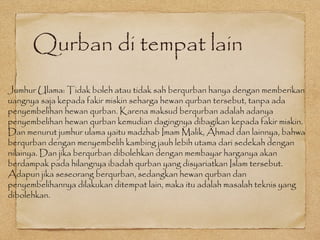 Qurban di tempat lain
Jumhur Ulama: Tidak boleh atau tidak sah berqurban hanya dengan memberikan
uangnya saja kepada fakir miskin seharga hewan qurban tersebut, tanpa ada
penyembelihan hewan qurban. Karena maksud berqurban adalah adanya
penyembelihan hewan qurban kemudian dagingnya dibagikan kepada fakir miskin.
Dan menurut jumhur ulama yaitu madzhab Imam Malik, Ahmad dan lainnya, bahwa
berqurban dengan menyembelih kambing jauh lebih utama dari sedekah dengan
nilainya. Dan jika berqurban dibolehkan dengan membayar harganya akan
berdampak pada hilangnya ibadah qurban yang disyariatkan Islam tersebut.
Adapun jika seseorang berqurban, sedangkan hewan qurban dan
penyembelihannya dilakukan ditempat lain, maka itu adalah masalah teknis yang
dibolehkan.